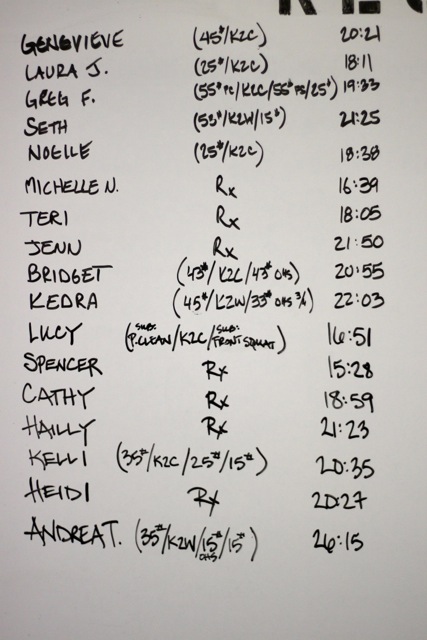 GENEVIEVE (45#/K2C) 20:21
LAURA J. (25#/K2C) 18:11
GREG F. (55# PC/K2C/55# PS/25#) 19:33
SETH (53#/K2W/15#) 21:25
NOELLE (25#/K2C) 18:38
MICHELLE N. Rx 16:39
TERI Rx 18:05
JENN Rx 21:50
BRIDGET (43#/K2C/43# OHS) 20:55
KEDRA (45#/K2W/33# OHS 3/6) 22:03
LUCY (SUB: P.CLEAN/K2C/SUB: FRONT SQUAT) 16:51
SPENCER Rx 15:28
CATHY Rx 18:59
HAILLY Rx 21:23
KELLI (35#/K2C/25#/15#) 20:35
HEIDI Rx 20:27
ANDREA T. (35#/K2W/15# OHS/15#) 26:15